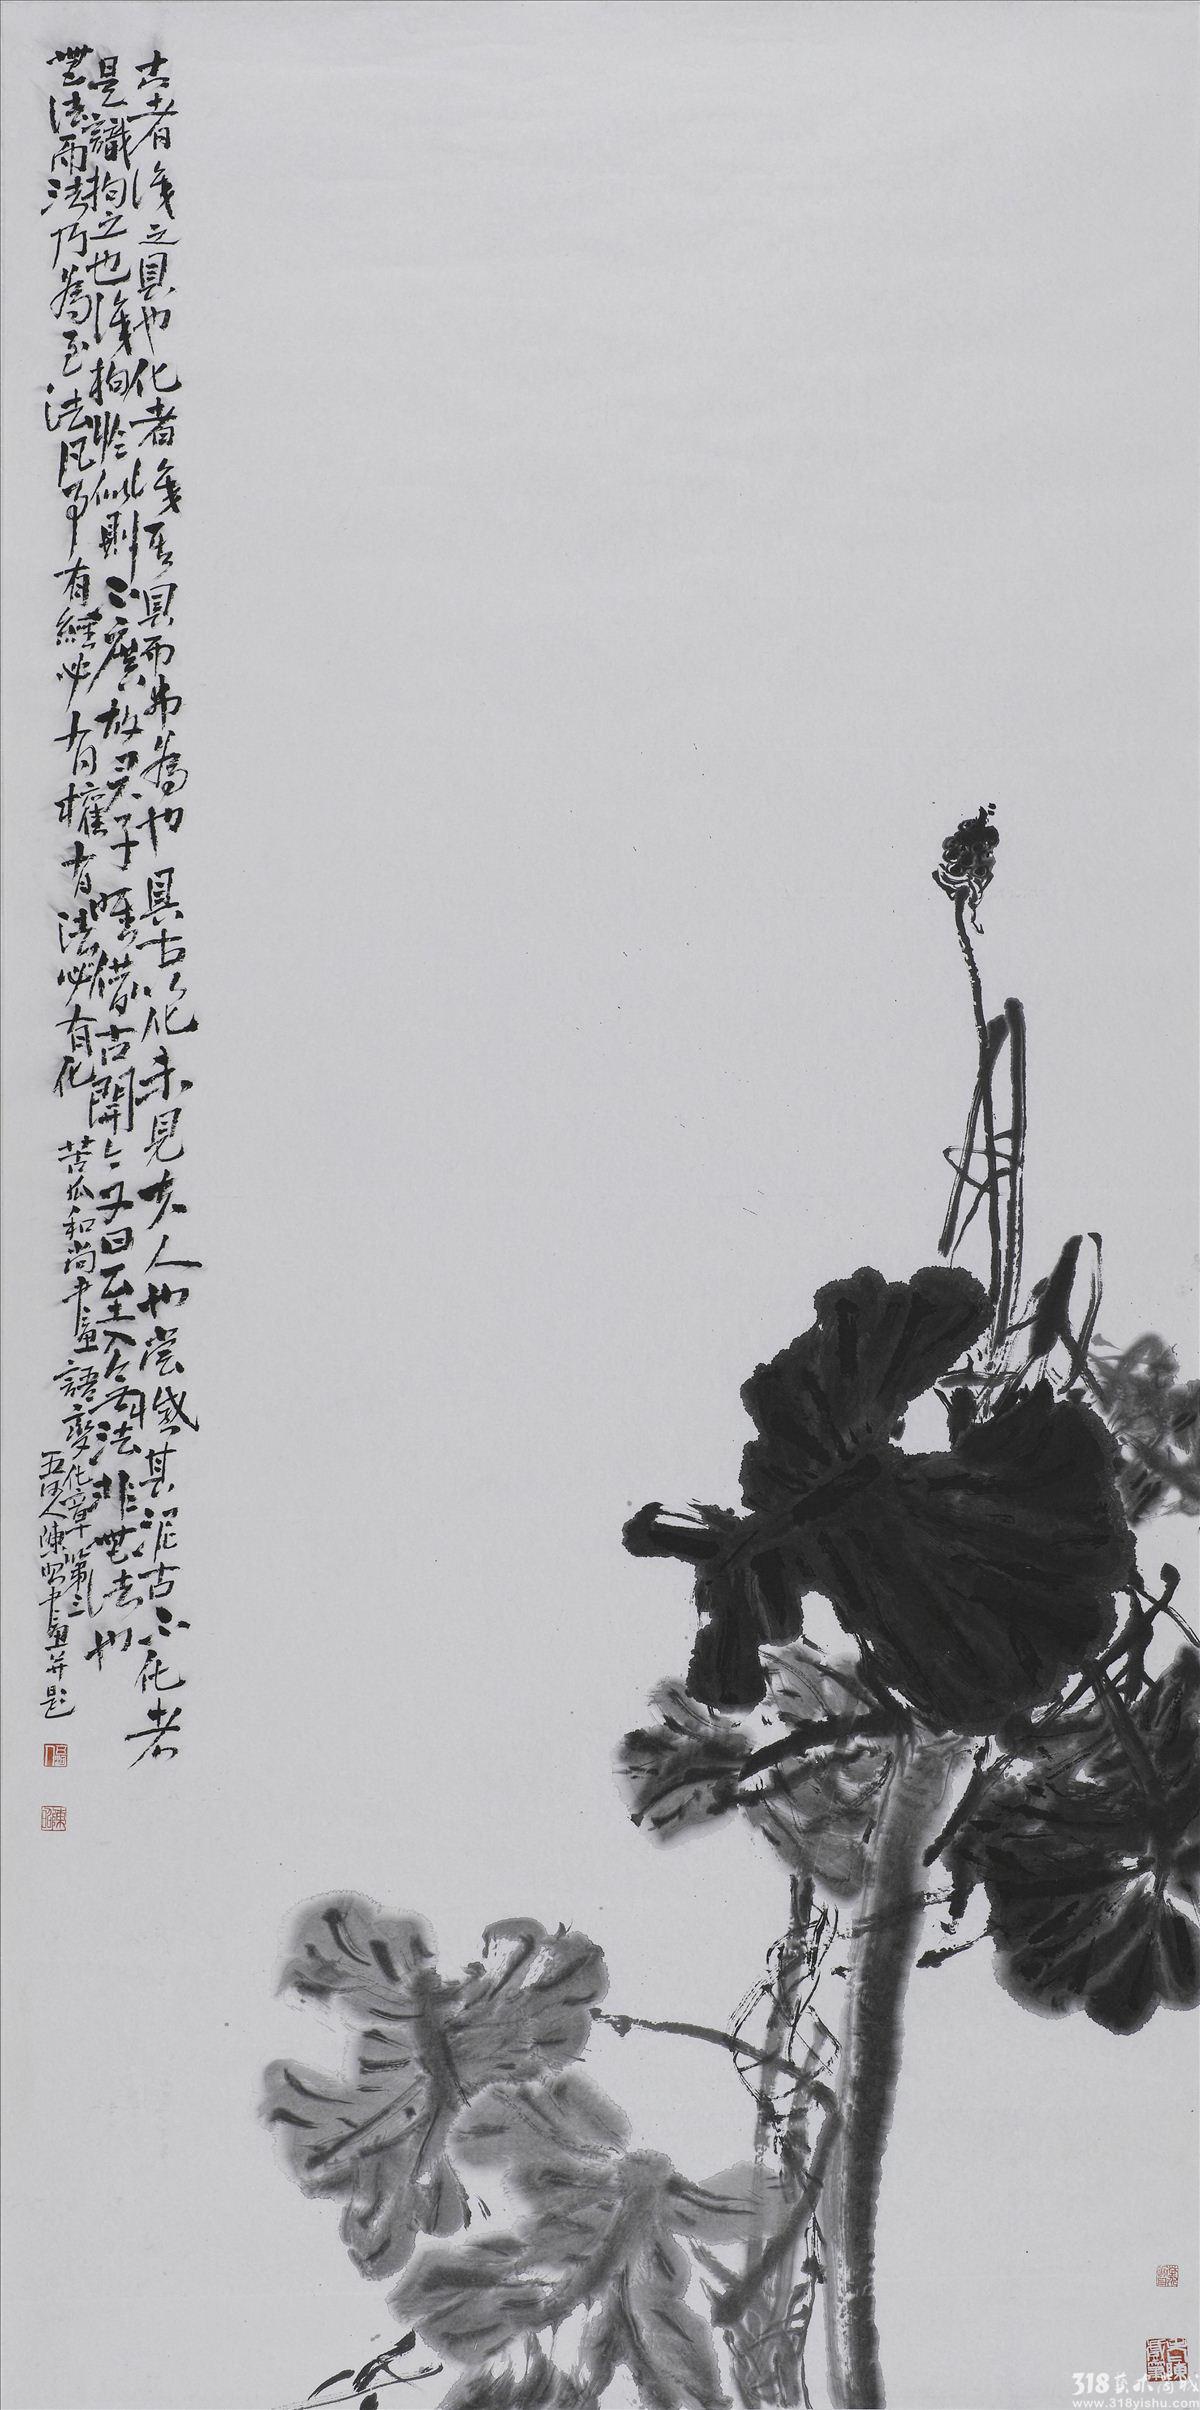 古者識之具也化者識其具而弗為也具古以化未見夫人也嘗憾其泥古不化者
是識拘之也識拘於似則不廣故君子唯借古開今又曰至人無法非無法也
無法而法乃為至法凡事有經必有權有法必有化 苦瓜和尚畫語變化章第三
人陳畫并題
318藝术商城
www.318yishu.com